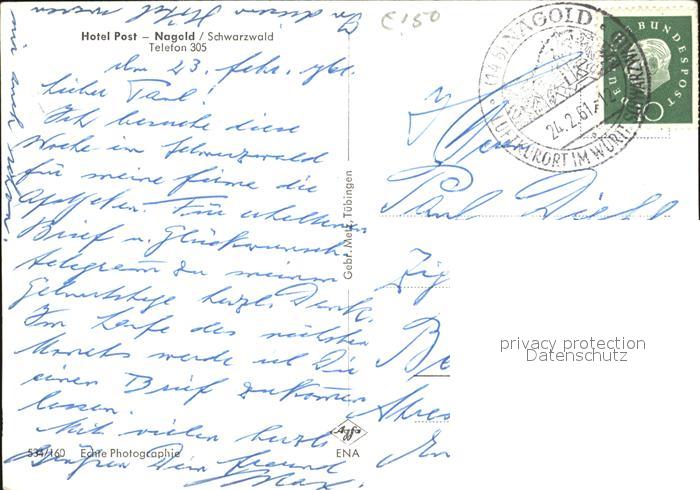 In diesem Hotel wohnen
wir auch schon.
Hotel Post – Nagold / Schwarzwald
Telefon 305
£ 1.50
den 23. Febr. 1961.
Lieber Paul!
Ich besuche diese
Woche im Schwarzwald
für meine Firma die
Apotheken. Für erhaltenen
Brief u. Glückwunsch-
telegramm zu meinem
Geburtstage herzl. Dank.
Im Laufe des nächsten
Monats werde ich Dir
einen Brief zukommen
lassen.
Mit vielen herzl.
Grüßen Dein Freund
Max.
534/160 Echte Photographie
Gebr. Metz, Tübingen
Agfa
ENA
NAGOLD
24.2.61.-12
LUFTKURORT IM WÜRTT. SCHWARZWALD
DEUTSCHE BUNDESPOST
10
Herrn
Paul Diehl
Zig
Be
privacy protection
Datenschutz